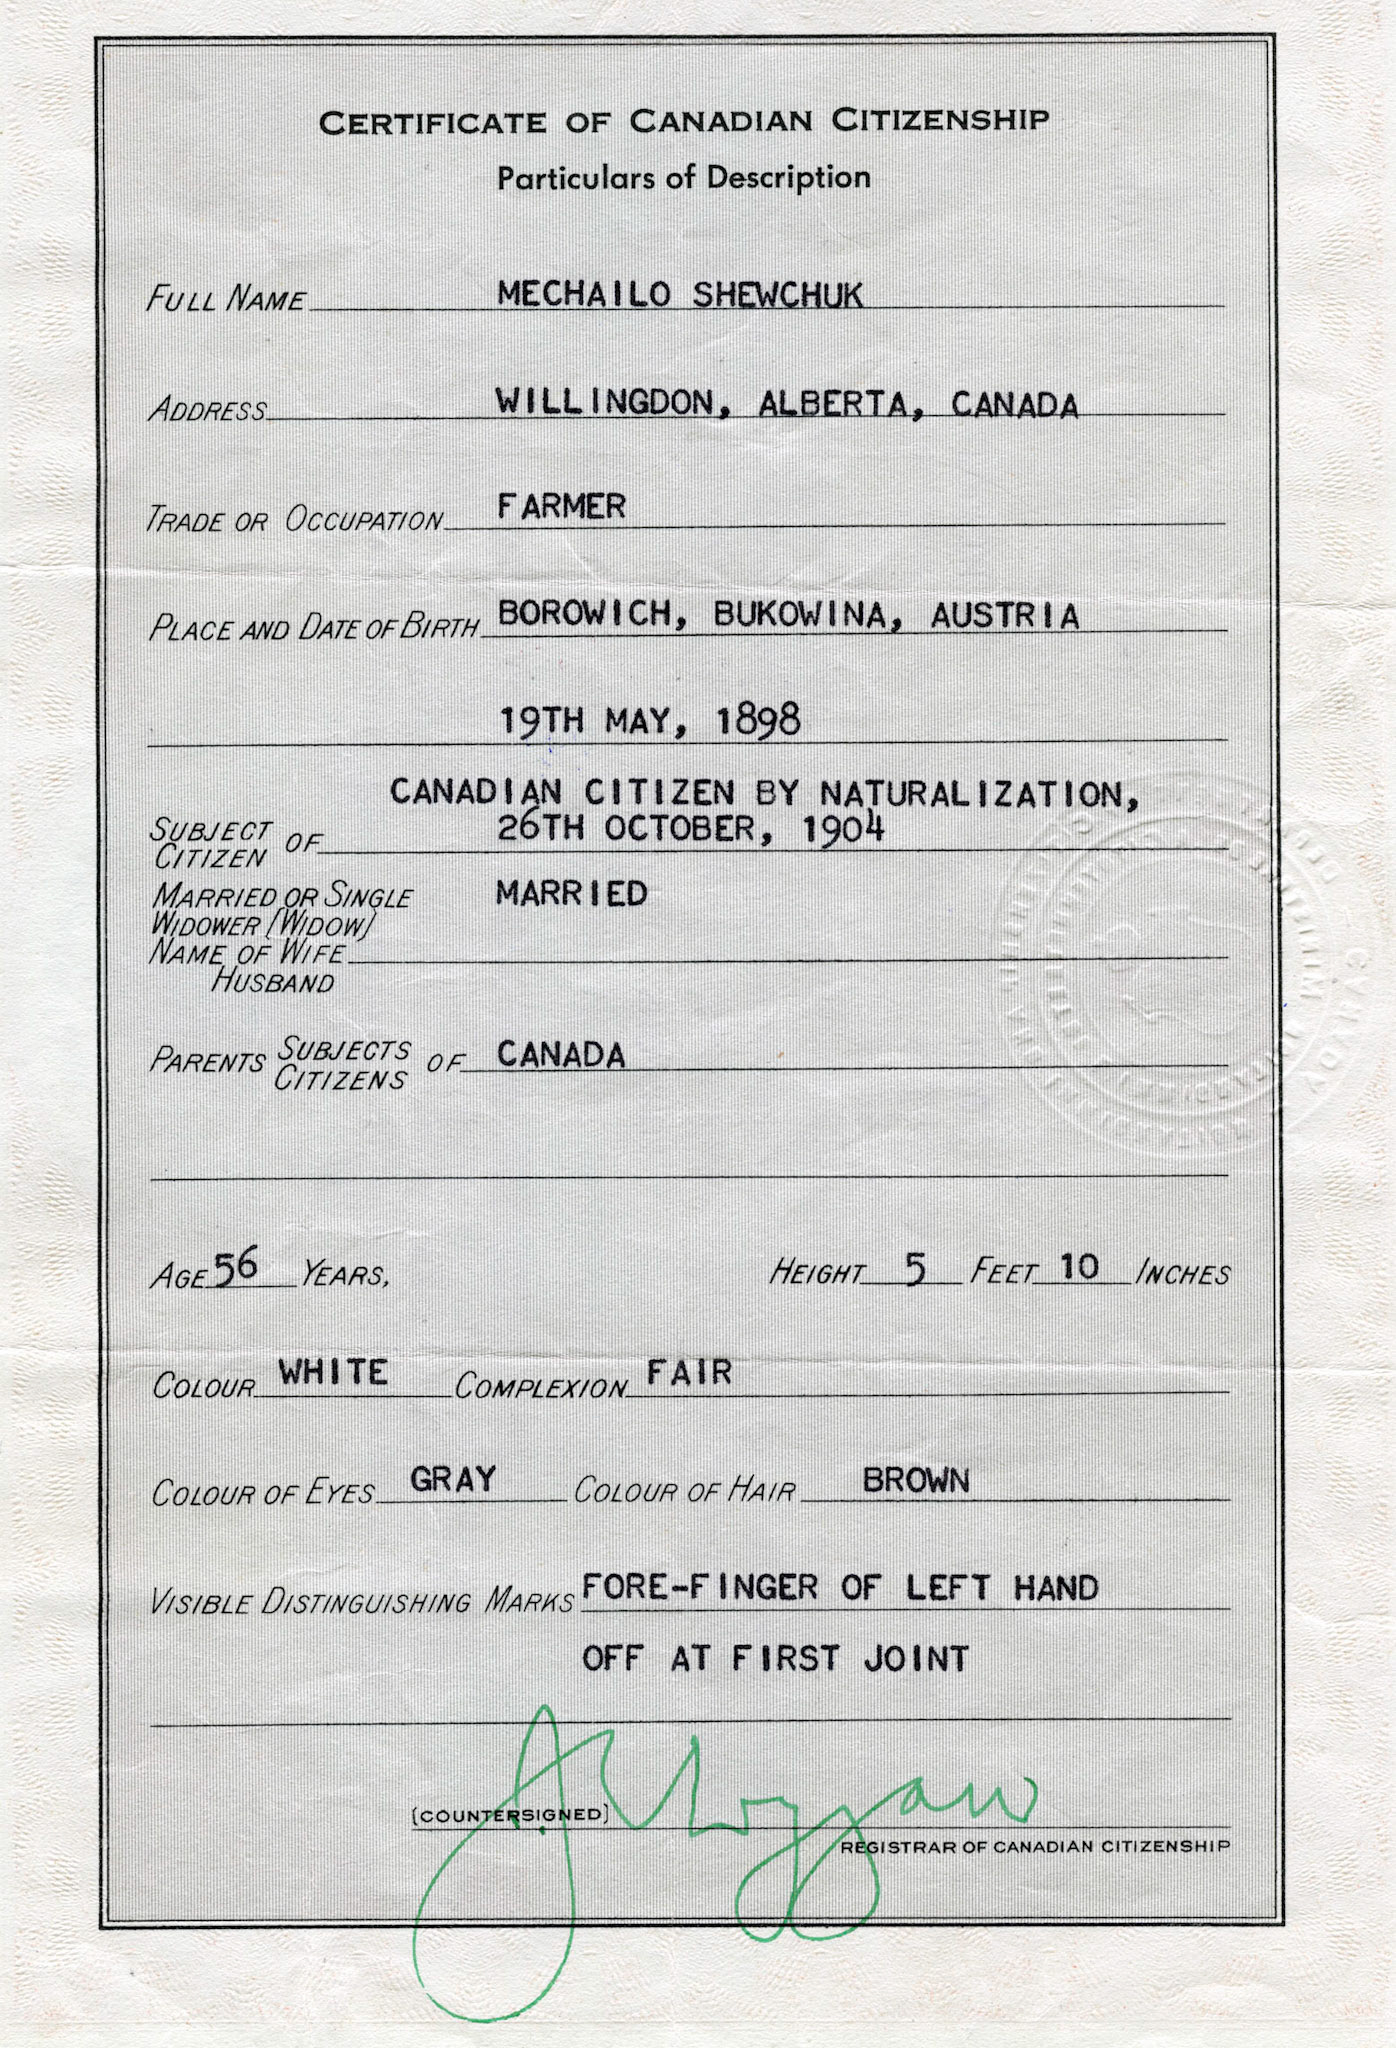 CERTIFICATE OF CANADIAN CITIZENSHIP
Particulars of Description
FULL NAME MECHAILO SHEWCHUK
ADDRESS WILLINGDON, ALBERTA, CANADA
TRADE OR OCCUPATION FARMER
PLACE AND DATE OF BIRTH BOROWICH, BUKOWINA, AUSTRIA
19TH MAY, 1898
CANADIAN CITIZEN BY NATURALIZATION,
SUBJECT OF 26TH OCTOBER, 1904
CITIZEN
MARRIED OR SINGLE MARRIED
WIDOWER (WIDOW)
NAME OF WIFE
HUSBAND
PARENTS SUBJECTS OF CANADA
CITIZENS
AGE 56 YEARS, HEIGHT 5 FEET 10 INCHES
COLOUR WHITE COMPLEXION FAIR
COLOUR OF EYES GRAY COLOUR OF HAIR BROWN
VISIBLE DISTINGUISHING MARKS FORE-FINGER OF LEFT HAND
OFF AT FIRST JOINT
(COUNTERSIGNED)
REGISTRAR OF CANADIAN CITIZENSHIP